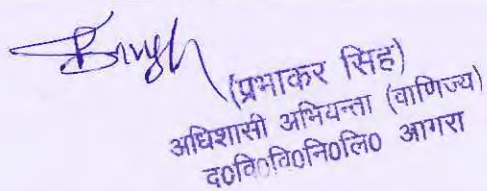 (प्रभाकर सिंह)
अधिशासी अभियन्ता (वाणिज्य)
द०वि०वि०नि०लि० आगरा